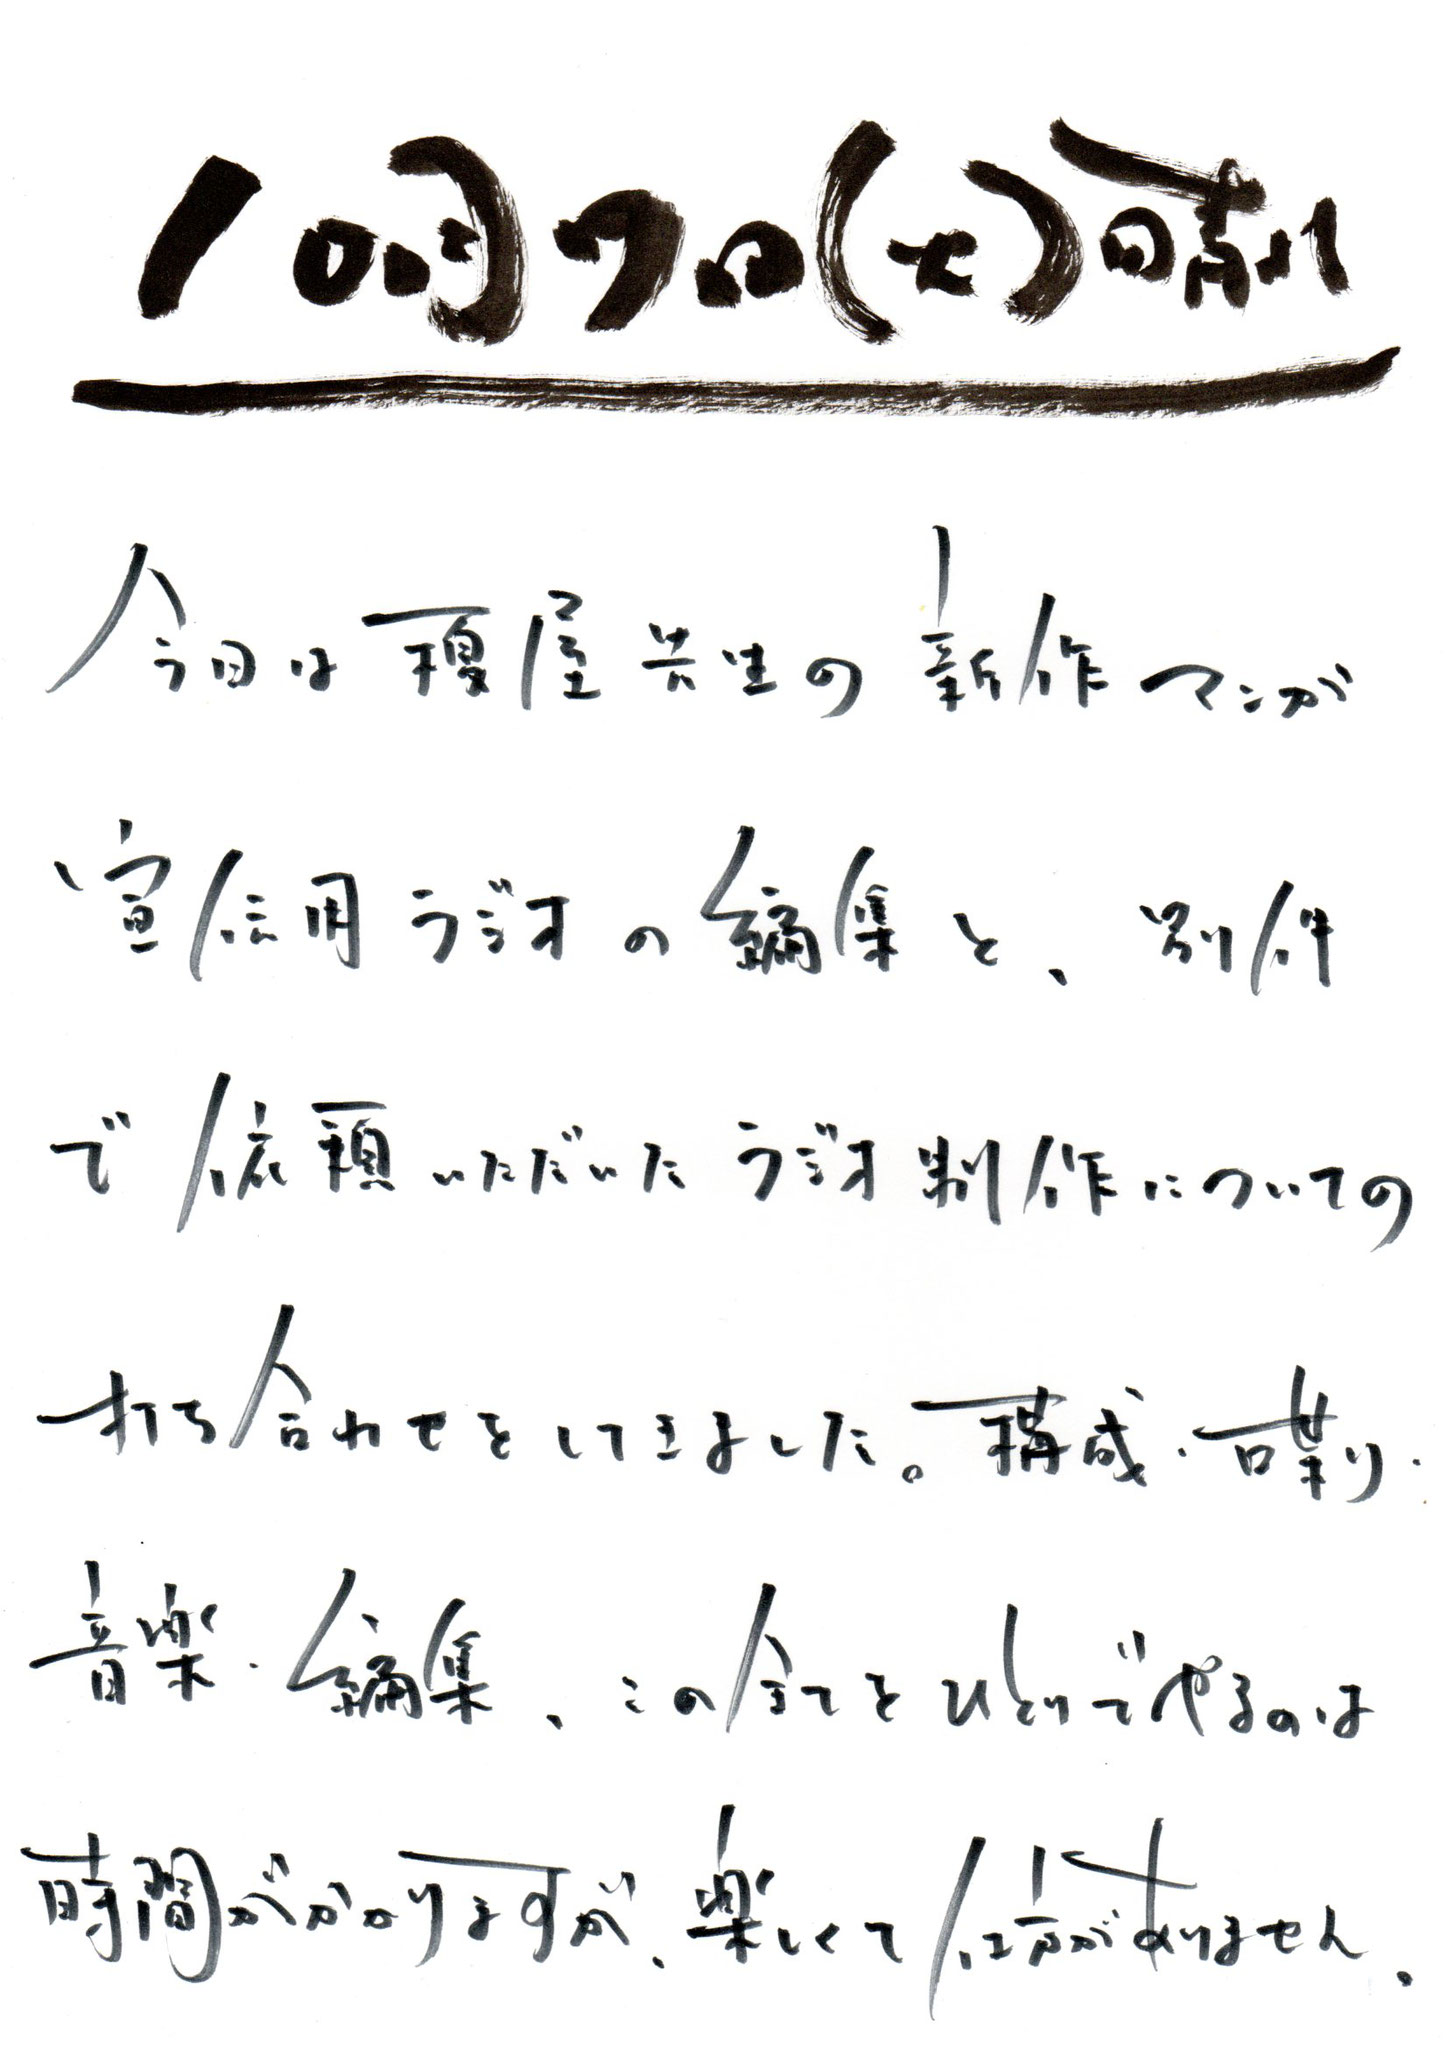 10月7日(土)晴れ
今日は榎屋先生の新作マンガ
宣伝用ラジオの編集と、別件
で依頼いただいたラジオ制作についての
打ち合わせをしてきました。構成・喋り・
音楽・編集、この全てをひとりでやるのは
時間がかかりますが、楽しくて仕方がありません。